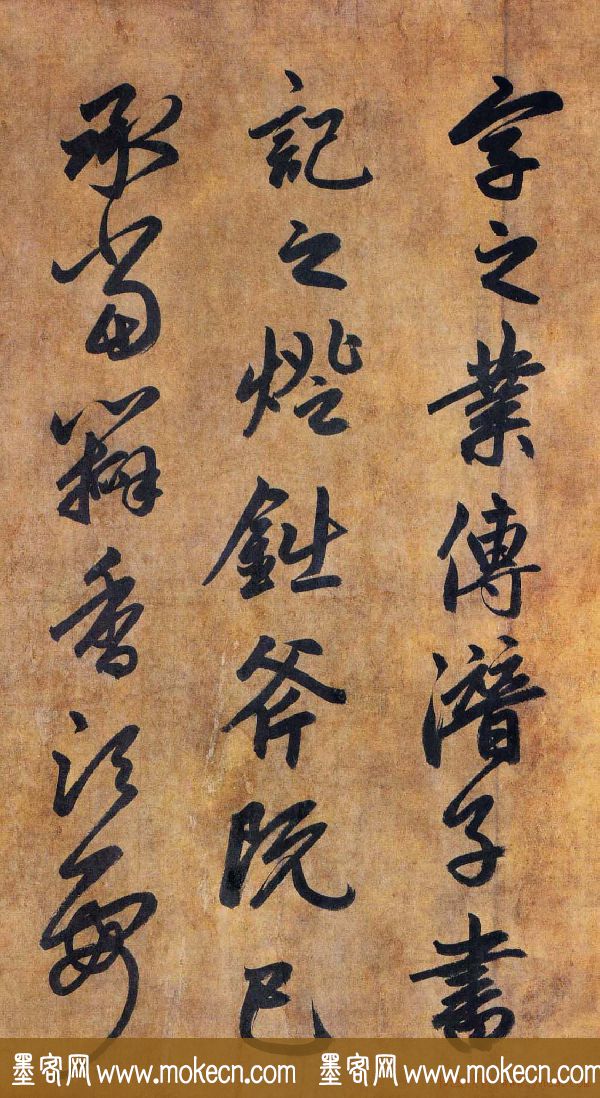 字之業傳潛子書
記之燈鈯斧既已
承當瓣香須要
墨客网 www.mokecn.com 墨客网 www.mokecn.com